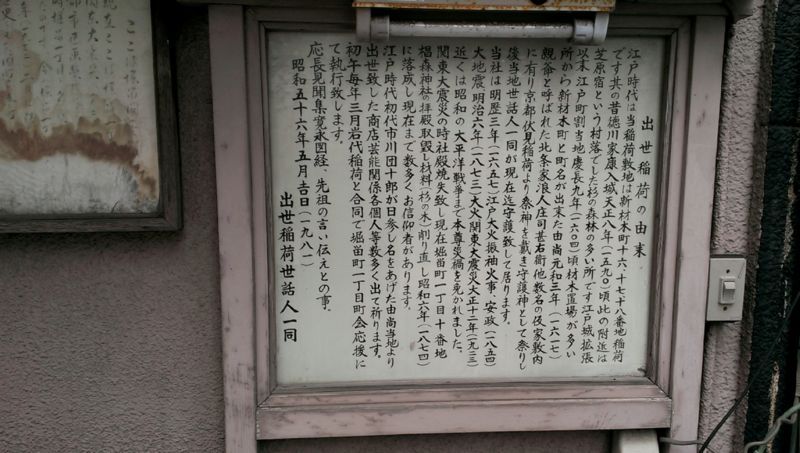 出世稲荷の由来
江戸時代は当稲荷敷地は新材木町十六十七十八番地稲荷
です其の昔徳川家康入城天正八年（一五九〇）頃此の附近は
芝原宿という村落でした杉の森林の多い所です江戸城拡張
以来江戸町割当地慶長九年（一六〇四）頃材木置場が多い
所から新材木町と町名が出来た由尚元和三年（一六一七）
親爺と呼ばれた北条家浪人庄司甚右衛他数名の仮家敷内
に有り京都伏見稲荷より祭神を戴き守護神として祭りし
後当地世話人一同が現在迄守護致して居ります。
当社は明歴三年（一六五七）江戸大火振袖火事 安政（一八五四）
大地震明治六年（一八七三）大火関東大震災大正十二年（一九二三）
近くは昭和の大平洋戦争まで本尊災禍を免かれました。
関東大震災の時社殿焼失致し現在堀留町一丁目十番地
椙森神社の拝殿取毀し材料（杉の木）削り直し昭和六年（一八七四）
に落成し現在まで数多くお信仰者があります。
江戸時代初代市川団十郎が日参し名をあげた由尚当地より
出世致した商店芸能関係各個人等数多く出て祈ります。
初午毎年三月岩代稲荷と合同で堀留町一丁目町会応援に
て執行致します。
応長見聞集寛永図経、先祖の言い伝えとの事。
昭和五十六年五月吉日（一九八一）
出世稲荷世話人一同